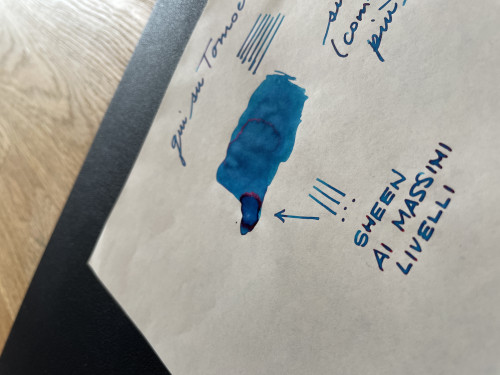 qui su Tomoe
su
(com
più
!!!
SHEEN
AI MASSIMI
LIVELLI